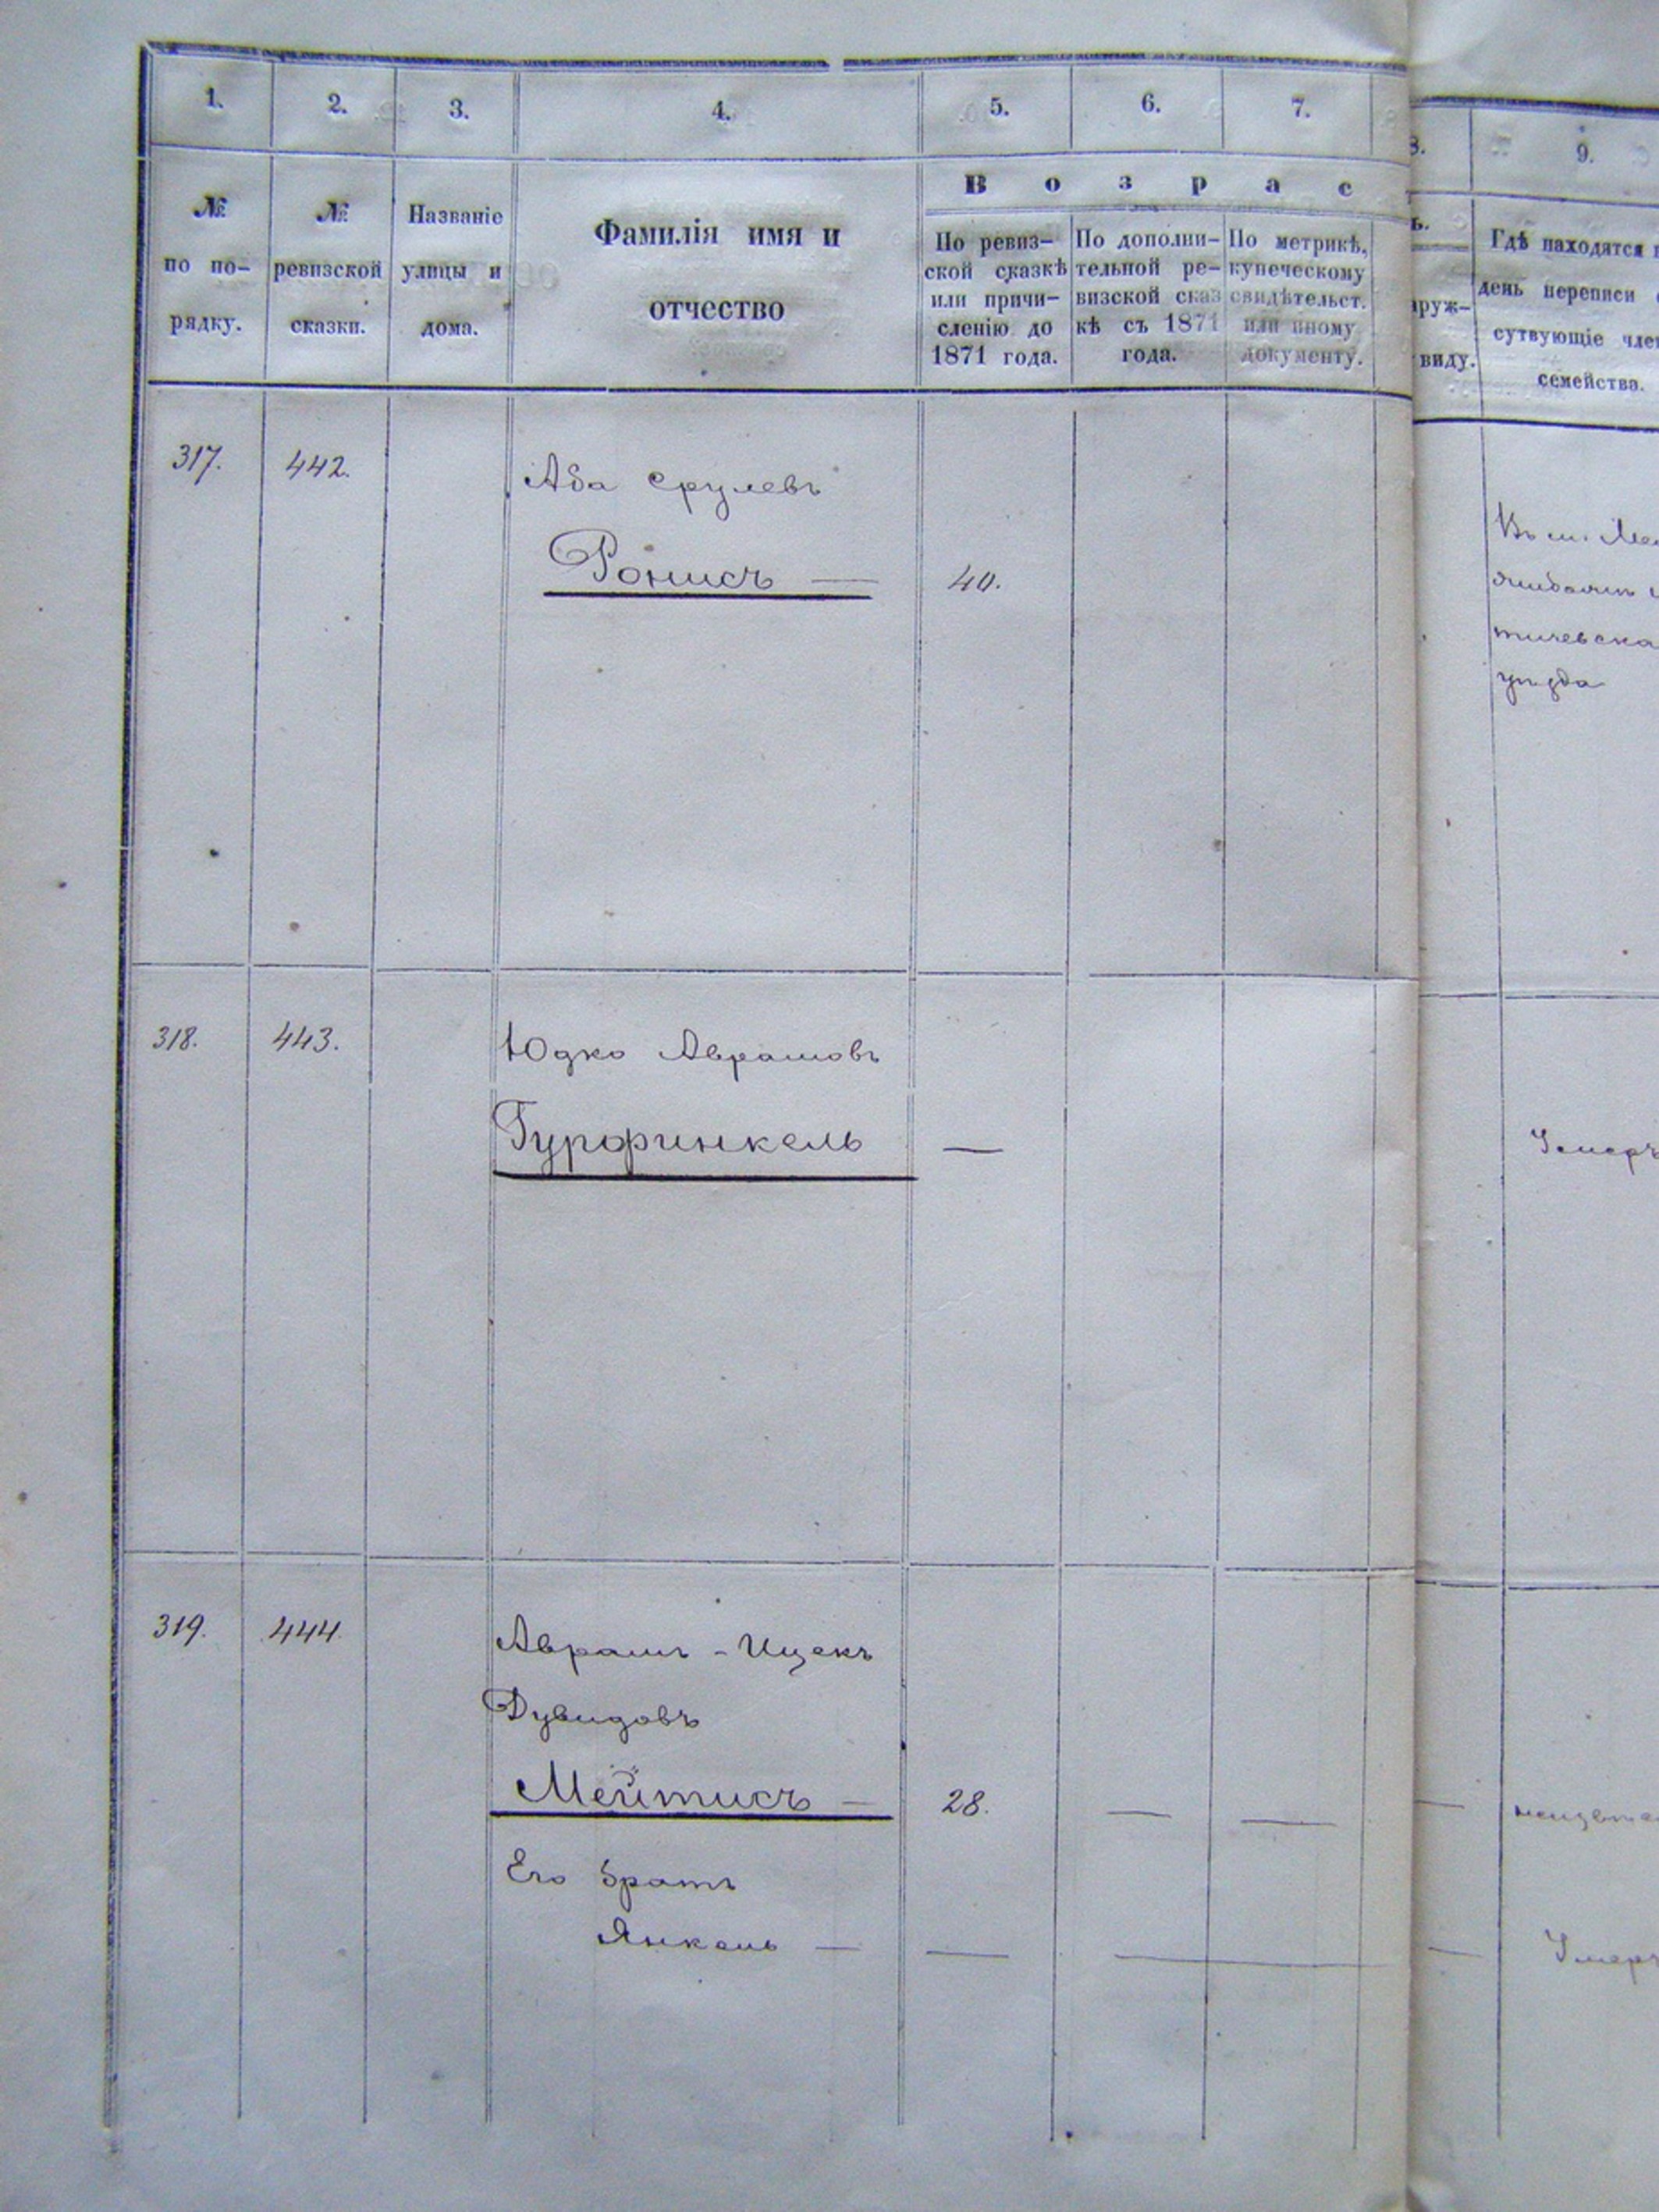 1. 2. 3. 4. 5. 6. 7. 9.
№ по по-рядку.
№ ревизской сказки.
Названіе улицы и дома.
Фамилія имя и
отчество
В о з р а с
По ревиз-
ской сказкѣ
или причи-
сленію до
1871 года.
По дополни-
тельной ре-
визской сказ
кѣ съ 1871
года.
По метрикѣ,
купеческому
свидѣтельст.
или иному
документу.
ь.
аруж-
виду.
Гдѣ находятся
день переписи
сутвующіе
семейства.
317. 442. Аба Срулевъ
Ронисъ — 40.
Въ м.
уѣзда
318. 443. Юдко Аврамовъ
Гурфинкель —
Умеръ
319. 444. Аврамъ-Ицекъ
Дувидовъ
Мейтисъ — 28. — — —
Его братъ
Янкель — — — —
Умеръ